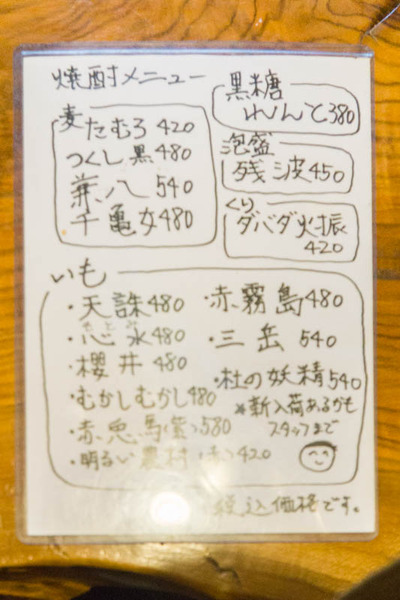 焼酎メニュー
麦
たむろ 420
つくし黒 480
兼八 540
千亀女 480
黒糖
れんと 380
泡盛
残波 450
くり
ダバダ火振
420
いも
・天誅 480
・心水 480
・櫻井 480
・むかしむかし 480
・赤兎馬(紫) 580
・明るい農村(赤) 420
・赤霧島 480
・三岳 540
・杜の妖精 540
※新入荷あるかも
スタッフまで
税込価格です。